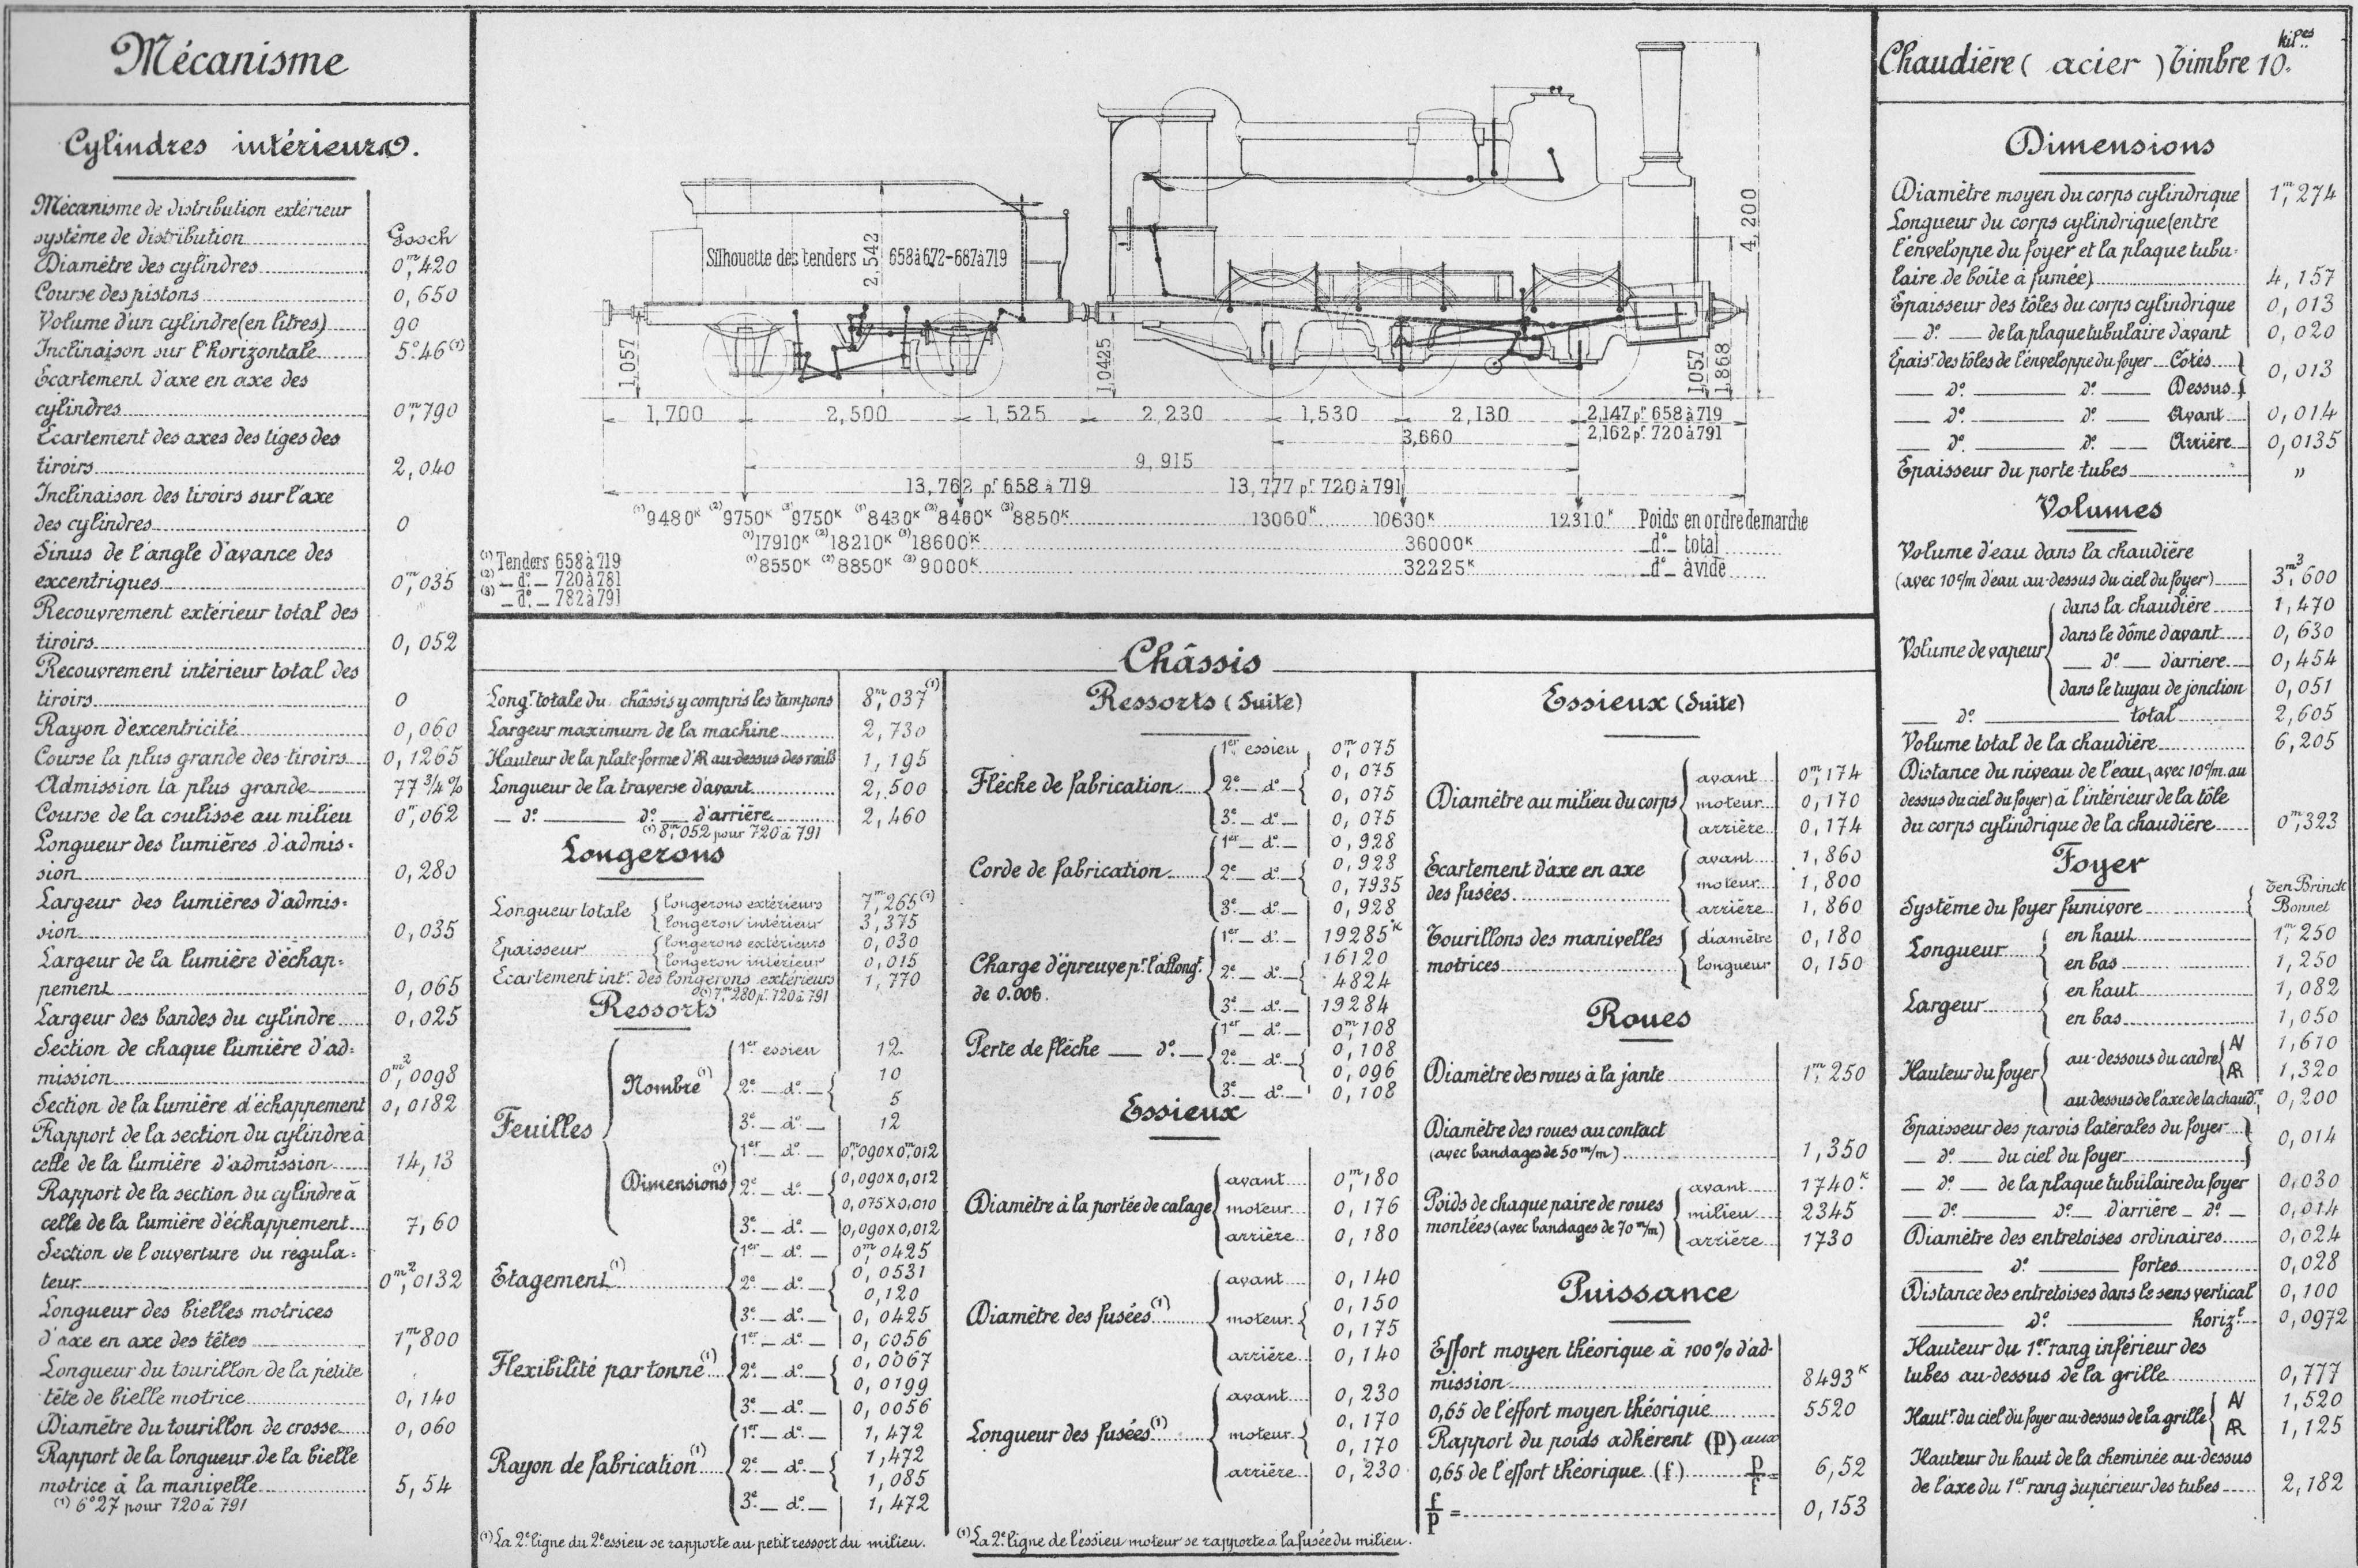 Mécanisme
Cylindres intérieurs.
Mécanisme de distribution extérieur
système de distribution Gooch
Diamètre des cylindres 0,m420
Course des pistons 0,650
Volume d'un cylindre (en litres) 90
Inclinaison sur l'horizontale 5°46(1)
Ecartement d'axe en axe des
cylindres 0,m790
Ecartement des axes des tiges des
tiroirs 2,040
Inclinaison des tiroirs sur l'axe
des cylindres 0
Sinus de l'angle d'avance des
excentriques 0,m035
Recouvrement extérieur total des
tiroirs 0,052
Recouvrement intérieur total des
tiroirs 0
Rayon d'excentricité 0,060
Course la plus grande des tiroirs 0,1265
Admission la plus grande 77 3/4 %
Course de la coulisse au milieu 0,m062
Longueur des lumières d'admis-
sion 0,280
Largeur des lumières d'admis-
sion 0,035
Largeur de la lumière d'échap-
pement 0,065
Largeur des bandes du cylindre 0,025
Section de chaque lumière d'ad-
mission 0,m²0098
Section de la lumière d'échappement 0,0182
Rapport de la section du cylindre à
celle de la lumière d'admission 14,13
Rapport de la section du cylindre à
celle de la lumière d'échappement 7,60
Section de l'ouverture du régula-
teur 0,m²0132
Longueur des bielles motrices
d'axe en axe des têtes 1,m800
Longueur du tourillon de la petite
tête de bielle motrice 0,140
Diamètre du tourillon de crosse 0,060
Rapport de la longueur de la bielle
motrice à la manivelle 5,54
(1) 6°27 pour 720 à 791
Silhouette des tenders 658 à 672-687 à 719
2,542
4,200
1,057
1,0425
1,057
1,868
1,700 2,500 1,525 2,230 1,530 2,130 2,147 pr 658 à 719
3,660 2,162 pr 720 à 791
9,915
13,762 pr 658 à 719 13,777 pr 720 à 791
(1)9480K (2)9750K (3)9750K (1)8430K (2)8460K (3)8850K 13060K 10630K 12310K Poids en ordre de marche
(1)17910K (2)18210K (3)18600K 36000K _d°_ total
(1)8550K (2)8850K (3)9000K 32225K _d°_ à vide
(1) Tenders 658 à 719
(2) _ d° _ 720 à 781
(3) _ d° _ 782 à 791
Châssis
Longr totale du châssis y compris les tampons 8,m037(1)
Largeur maximum de la machine 2,730
Hauteur de la plate-forme d'AR au-dessus des rails 1,195
Longueur de la traverse d'avant 2,500
_ d° _ d° _ d'arrière 2,460
(1) 8,m052 pour 720 à 791
Longerons
Longueur totale { longerons extérieurs 7,m265(1)
longeron intérieur 3,375
Epaisseur { longerons extérieurs 0,030
longeron intérieur 0,015
Ecartement intr des longerons extérieurs 1,770
(1) 7,m280 pr 720 à 791
Ressorts
Feuilles
Nombre(1) 1er essieu 12
2e _ d° _ { 10
5
3e _ d° _ 12
Dimensions(1) 1er _ d° _ 0,m090 x 0,m012
2e _ d° _ { 0,090 x 0,012
0,075 x 0,010
3e _ d° _ 0,090 x 0,012
Etagement(1) 1er _ d° _ 0,m0425
2e _ d° _ { 0,0531
0,120
3e _ d° _ 0,0425
Flexibilité par tonne(1) 1er _ d° _ 0,0056
2e _ d° _ { 0,0067
0,0199
3e _ d° _ 0,0056
Rayon de fabrication(1) 1er _ d° _ 1,472
2e _ d° _ { 1,472
1,085
3e _ d° _ 1,472
(1) La 2e ligne du 2e essieu se rapporte au petit ressort du milieu.
Ressorts (Suite)
Flèche de fabrication 1er essieu 0,m075
2e _ d° _ { 0,075
0,075
3e _ d° _ 0,075
Corde de fabrication 1er _ d° _ 0,928
2e _ d° _ { 0,928
0,7935
3e _ d° _ 0,928
Charge d'épreuve pr l'allongt
de 0.006. 1er _ d° _ 19285K
2e _ d° _ { 16120
4824
3e _ d° _ 19284
Perte de flèche _ d° _ 1er _ d° _ 0,m108
2e _ d° _ { 0,108
0,096
3e _ d° _ 0,108
Essieux
Diamètre à la portée de calage avant 0,m180
moteur 0,176
arrière 0,180
Diamètre des fusées(1) avant 0,140
moteur { 0,150
0,175
arrière 0,140
Longueur des fusées(1) avant 0,230
moteur { 0,170
0,170
arrière 0,230
(1) La 2e ligne de l'essieu moteur se rapporte à la fusée du milieu.
Essieux (Suite)
Diamètre au milieu du corps avant 0,m174
moteur 0,170
arrière 0,174
Ecartement d'axe en axe
des fusées avant 1,860
moteur 1,800
arrière 1,860
Tourillons des manivelles
motrices diamètre 0,180
longueur 0,150
Roues
Diamètre des roues à la jante 1,m250
Diamètre des roues au contact
(avec bandages de 50 m/m) 1,350
Poids de chaque paire de roues
montées (avec bandages de 70 m/m) avant 1740K
milieu 2345
arrière 1730
Puissance
Effort moyen théorique à 100% d'ad-
mission 8493K
0,65 de l'effort moyen théorique 5520
Rapport du poids adhérent (P) aux
0,65 de l'effort théorique (f) P/f = 6,52
f/P = 0,153
Chaudière (acier) Timbre 10 kilos
Dimensions
Diamètre moyen du corps cylindrique 1,m274
Longueur du corps cylindrique (entre
l'enveloppe du foyer et la plaque tubu-
laire de boîte à fumée) 4,157
Epaisseur des tôles du corps cylindrique 0,013
_ d° _ de la plaque tubulaire d'avant 0,020
Epaisr des tôles de l'enveloppe du foyer Côtés } 0,013
_ d° _ d° _ Dessus }
_ d° _ d° _ Avant 0,014
_ d° _ d° _ Arrière 0,0135
Epaisseur du porte-tubes "
Volumes
Volume d'eau dans la chaudière
(avec 10 c/m d'eau au-dessus du ciel du foyer) 3,m³600
Volume de vapeur { dans la chaudière 1,470
dans le dôme d'avant 0,630
_ d° _ d'arrière 0,454
dans le tuyau de jonction 0,051
_ d° _ total 2,605
Volume total de la chaudière 6,205
Distance du niveau de l'eau, avec 10 c/m au
dessus du ciel du foyer) à l'intérieur de la tôle
du corps cylindrique de la chaudière 0,m323
Foyer
Système du foyer fumivore { Ten Brinck
Bonnet
Longueur { en haut 1,m250
en bas 1,250
Largeur { en haut 1,082
en bas 1,050
Hauteur du foyer { au-dessous du cadre { AV 1,610
AR 1,320
au-dessus de l'axe de la chaudre 0,200
Epaisseur des parois latérales du foyer } 0,014
_ d° _ du ciel du foyer }
_ d° _ de la plaque tubulaire du foyer 0,030
_ d° _ d° _ d'arrière _ d° _ 0,014
Diamètre des entretoises ordinaires 0,024
_ d° _ fortes 0,028
Distance des entretoises dans le sens vertical 0,100
_ d° _ horizt 0,0972
Hauteur du 1er rang inférieur des
tubes au-dessus de la grille 0,777
Hautr du ciel du foyer au-dessus de la grille { AV 1,520
AR 1,125
Hauteur du haut de la cheminée au-dessus
de l'axe du 1er rang supérieur des tubes 2,182